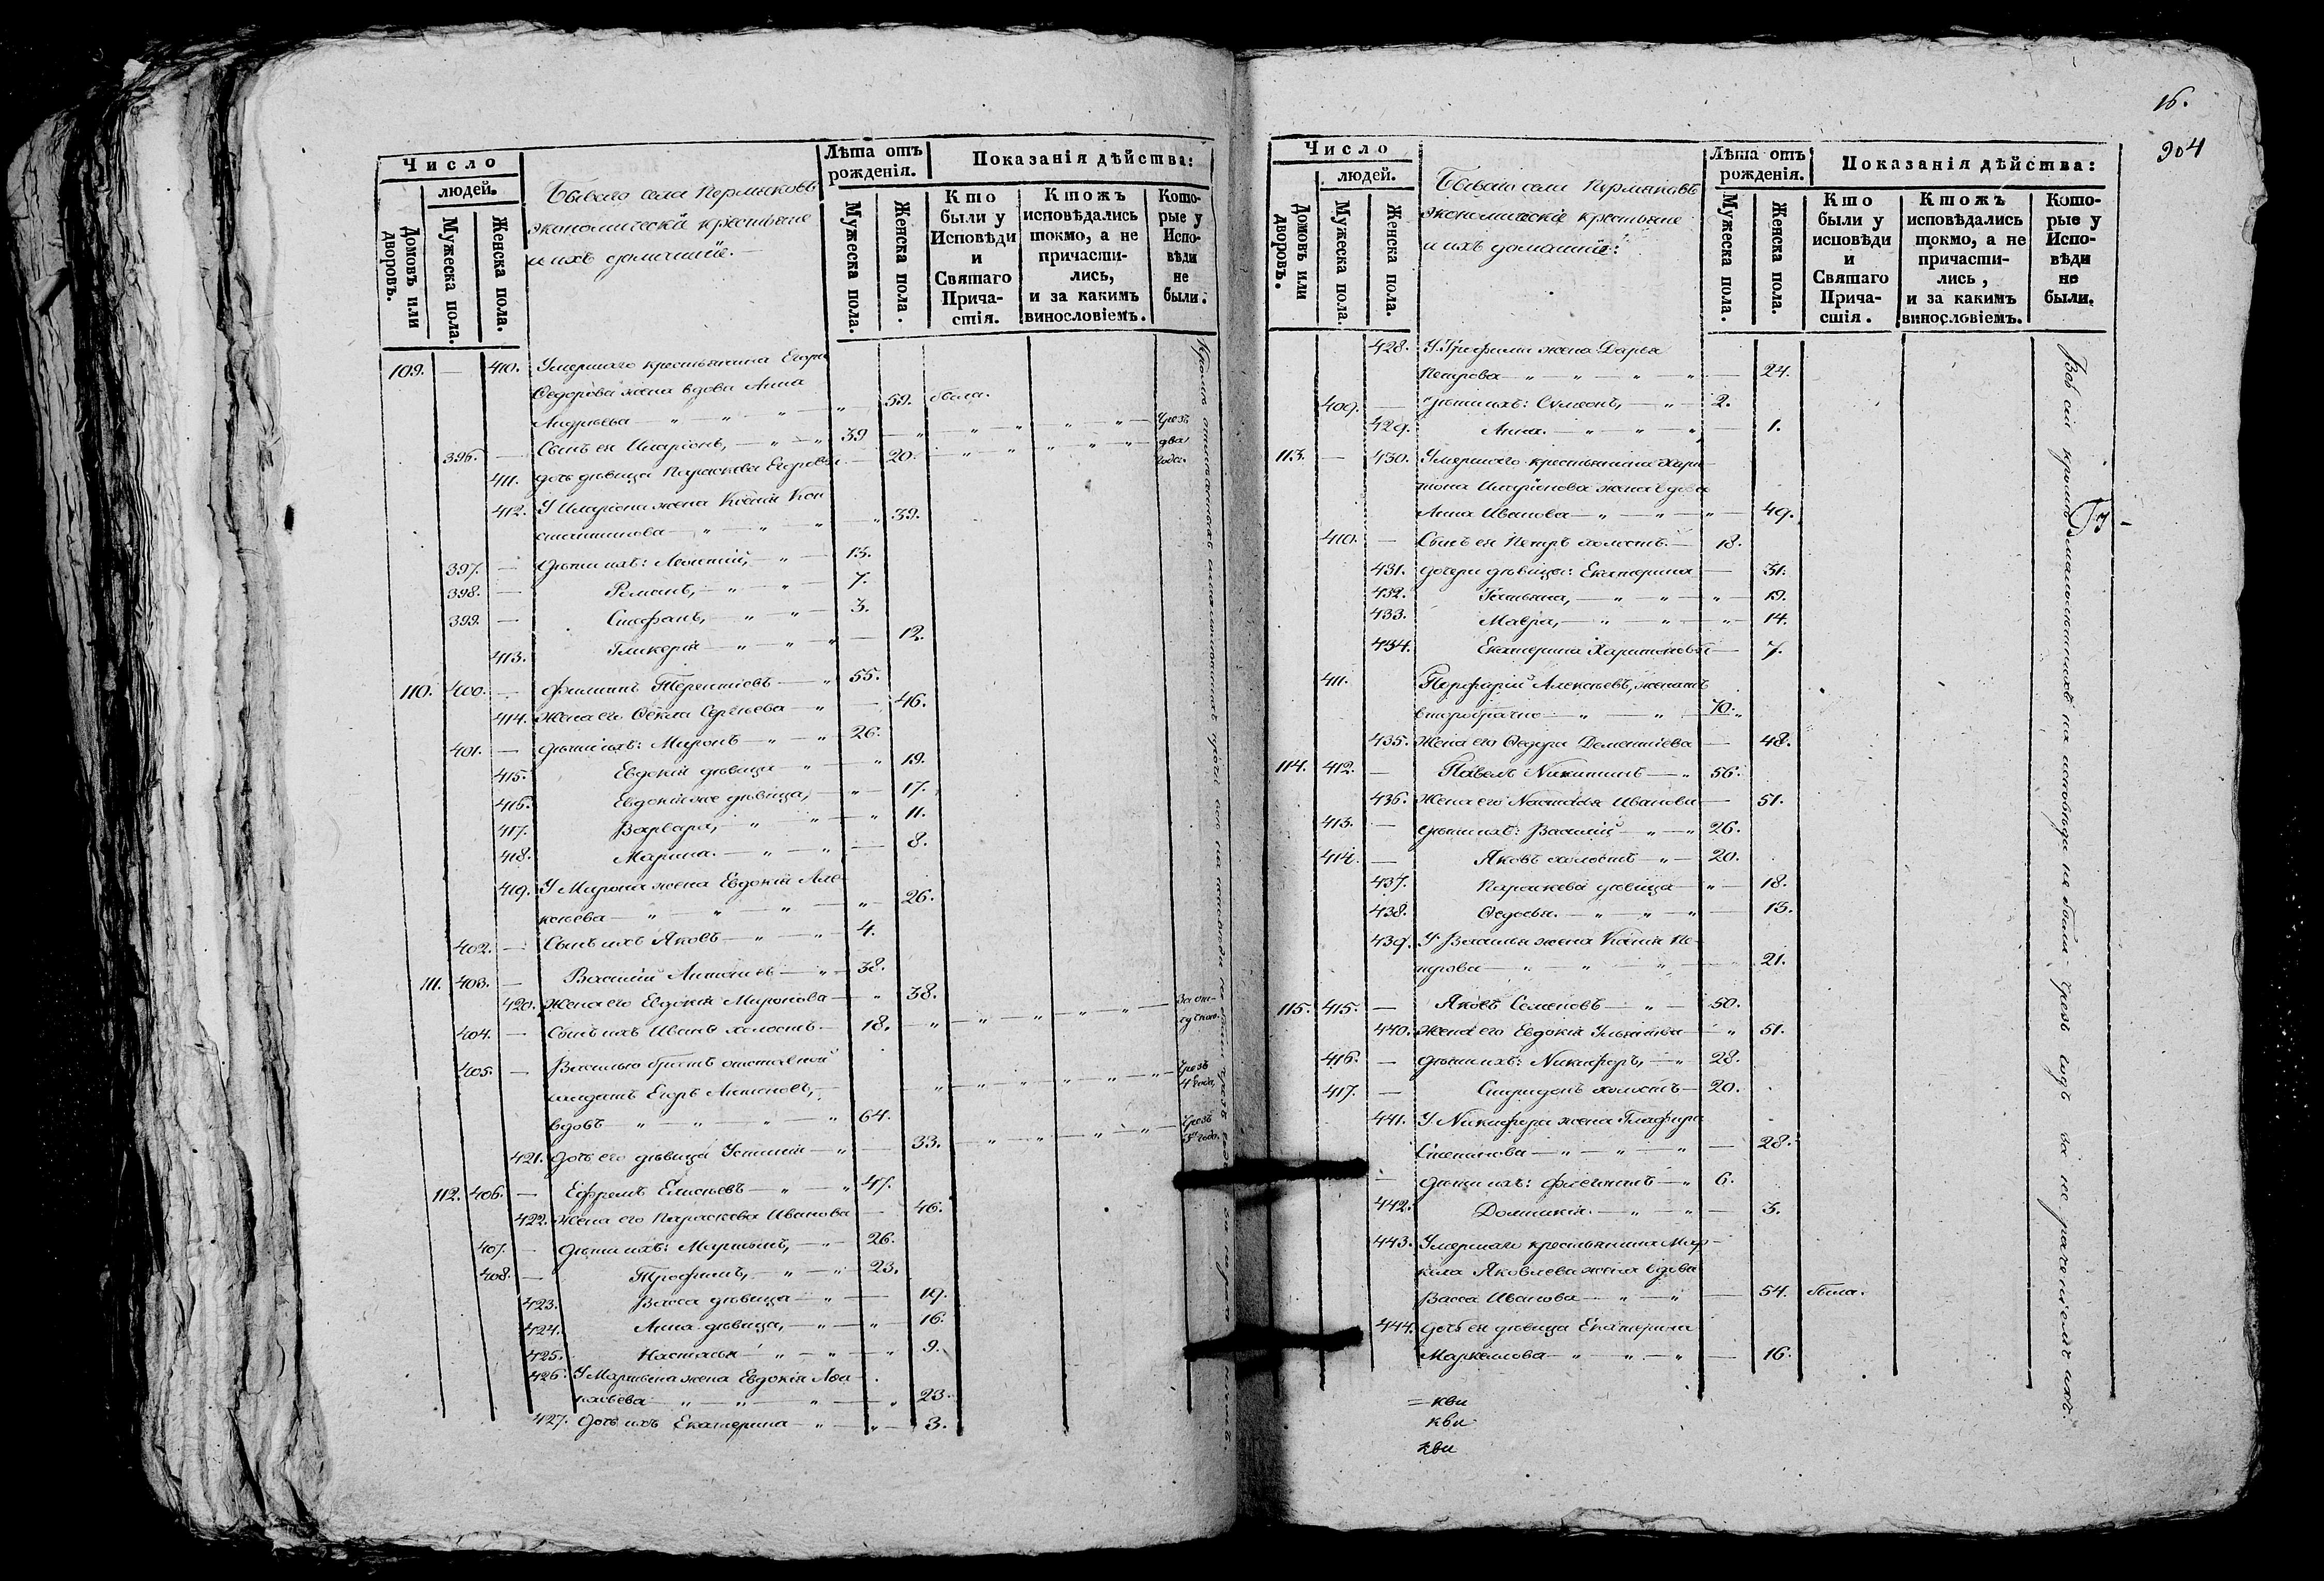 Число
людей.
Домовъ или дворовъ.
Мужеска пола.
Женска пола.
Бываго села Пермяковъ
экономическіи крестьяне
и ихъ домашніе.
Лѣта отъ рожденія.
Мужеска пола.
Женска пола.
Показанія дѣйства:
Кто были у Исповѣди и Святаго Причастія.
Ктожъ исповѣдались токмо, а не причастились, и за какимъ винословіемъ.
Которые у Исповѣди не были.
109. — 410. Умершаго крестьянина Егора
Ѳедорова жена вдова Анна
Андреева — 59. была.
396. — Сынъ ея Иларіонъ, — 39 Чрезъ два года.
411. дочь дѣвица Параскева Егорова — 20.
412. У Иларіона жена Ксенія Кон
стантинова — 39.
397. — дѣти ихъ: Леонтій, — 13.
398. — Романъ, — 7.
399. — Стефанъ, — 3.
413. Гликерія — 12.
110. 400. — Филиппъ Терентіевъ — 55.
414. Жена его Ѳекла Сергѣева — 46.
401. — дѣти ихъ: Миронъ — 26.
415. Евдокія дѣвица — 19.
416. Евдокія же дѣвица, — 17.
417. Варвара, — 11.
418. Марина. — 8.
419. У Мирона жена Евдокія Але
ксѣева — 26.
402. — Сынъ ихъ Яковъ — 4.
111. 403. — Василій Антоновъ — 38.
420. Жена его Евдокія Миронова — 38.
404. — Сынъ ихъ Иванъ холостъ. — 18. За отлучкою.
405. — Василью братъ отставной
солдатъ Егоръ Антоновъ, Чрезъ 4 года,
вдовъ — 64.
421. дочь его дѣвица Устинія — 33. Чрезъ года.
112. 406. — Ефремъ Елисѣевъ — 47.
422. Жена его Параскева Иванова — 46.
407. — дѣти ихъ: Мартынъ, — 26.
408. — Трофимъ, — 23.
423. Васса дѣвица — 19.
424. Анна дѣвица, — 16.
425. Настасья — 9.
426. У Мартына жена Евдокія
— 23.
427. дочь ихъ Екатерина — 3.
16.
904
Число
людей.
Домовъ или дворовъ.
Мужеска пола.
Женска пола.
Бываго села Пермяковъ
экономическіе крестьяне
и ихъ домашніе:
Лѣта отъ рожденія.
Мужеска пола.
Женска пола.
Показанія дѣйства:
Кто были у исповѣди и Святаго Причасшія.
Ктожъ исповѣдались токмо, а не причастились, и за какимъ винословіемъ.
Которые у Исповѣди не были.
428. У Трофима жена Дарья
Петрова — 24.
409. — дѣти ихъ: Симеонъ, — 2.
429. Анна. — 1.
113. — 430. Умершаго крестьянина Хари
тона Иларіонова жена вдова
Анна Иванова — 49.
410. — Сынъ ея Петръ холостъ. — 18.
431. дочери дѣвицы: Екатерина — 31.
432. Татьяна, — 19.
433. Мавра, — 14.
434. Екатерина Харитоновы — 7.
411. Порфирій Алексѣевъ, женатъ
второбрачно — 70.
435. Жена его Ѳедора Дементіева — 48.
114. 412. — Павелъ Никитинъ — 56.
436. Жена его Настасья Иванова — 51.
413. — дѣти ихъ: Василій — 26.
414. — Яковъ холостъ — 20.
437. Параскева дѣвица — 18.
438. Ѳедосья. — 13.
439. У Василья жена Ксенія Пе
трова — 21.
115. 415. — Яковъ Семеновъ — 50.
440. Жена его Евдокія — 51.
416. — дѣти ихъ: Никифоръ, — 28.
417. — Спиридонъ холостъ — 20.
441. У Никифора жена Глафира
Степанова — 28.
— дѣти ихъ: — 6.
442. Домникія. — 3.
443. Умершаго крестьянина Мар
кела Яковлева жена вдова
Васса Иванова — 54. была.
444. дочь ея дѣвица Екатерина
Маркелова — 16.
Всѣ сіи кромѣ малолѣтнихъ на исповѣди не были чрезъ годъ за не раченіемъ ихъ.
= кви
кви
кви